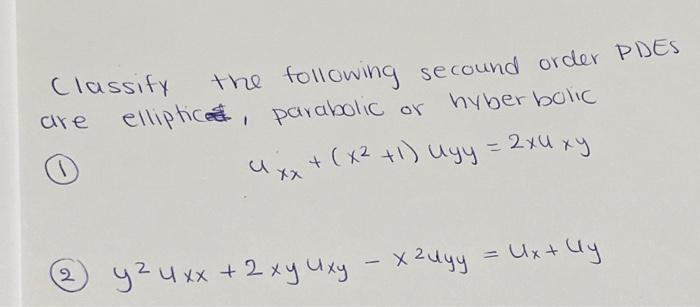 Classify the following secound order PDEs
are elliptic, parabolic or hyberbolic
① u xx + (x² +1) uyy = 2xu xy
② y² u xx + 2xy uxy − x² uyy = ux + uy